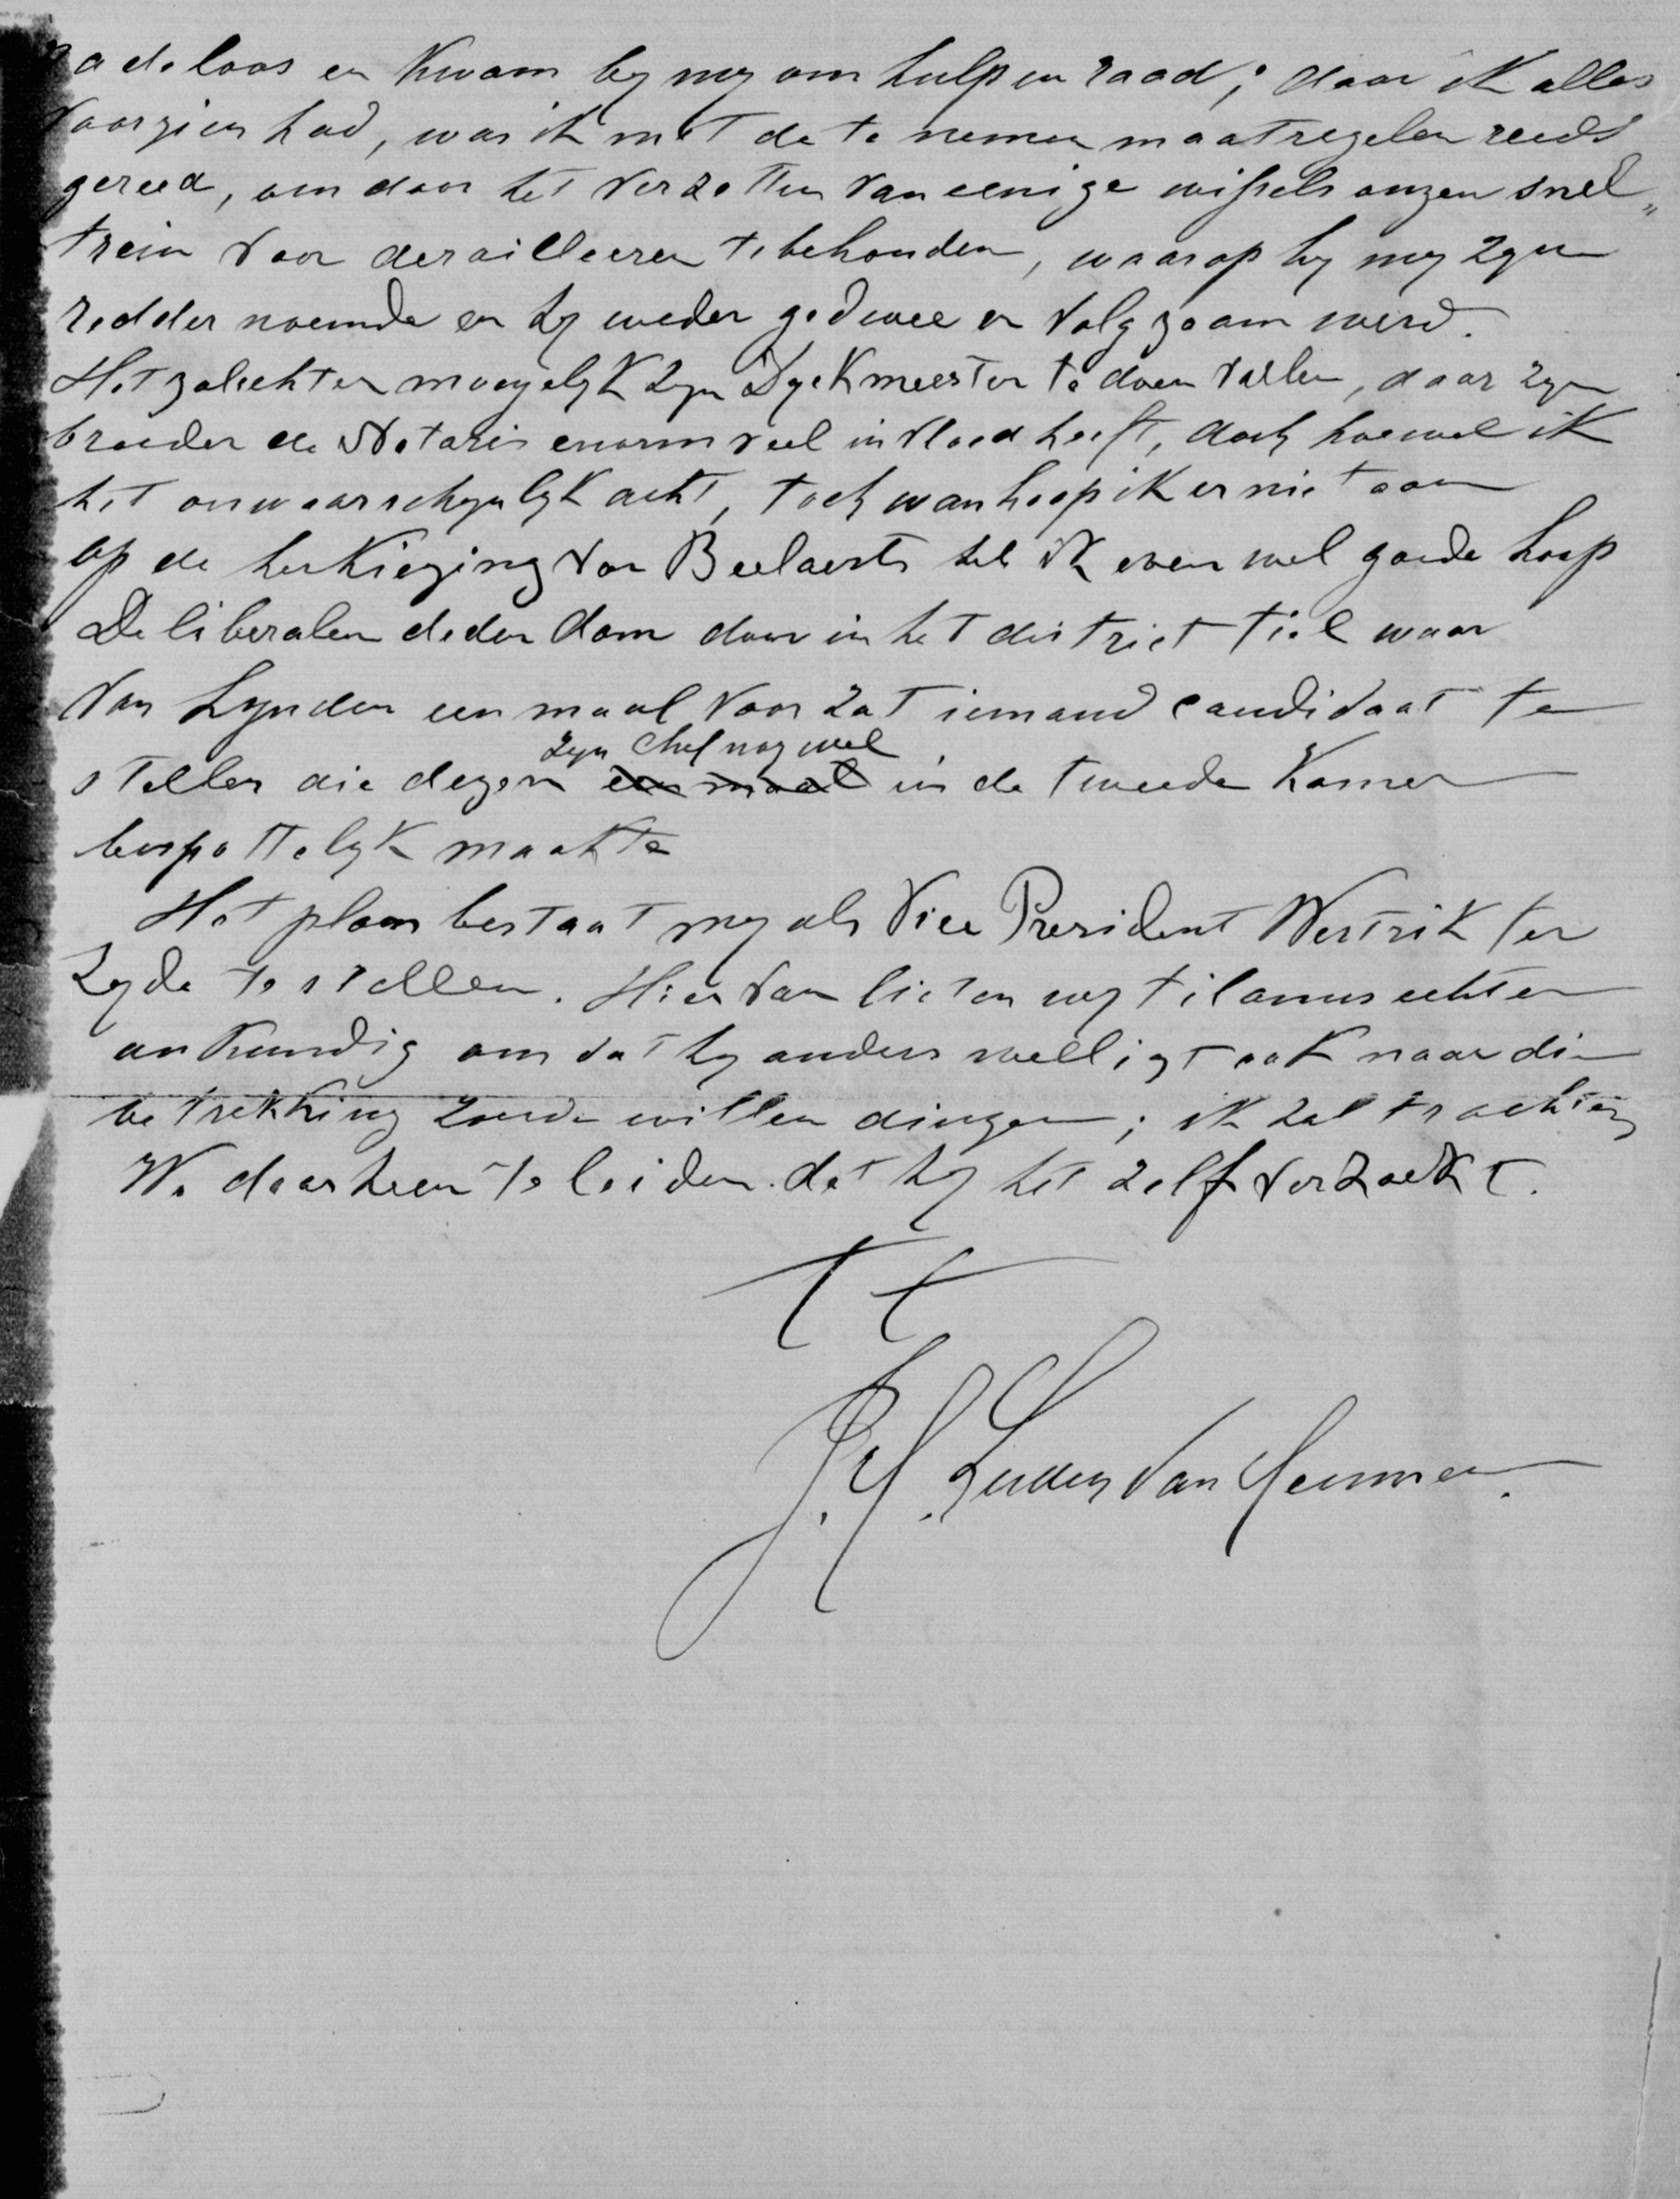 radeloos en kwam by my om hulp en raad; daar ik alles
voorzien had, was ik met de te nemen maatregelen reeds
gereed, om door het verzetten van eenige wissels onzen snel„
trein voor derailleeren te behouden, waarop hy my zyn
redder noemde en hy weder gedwee en volgzaam werd.
Het zal echter moeyelyk zyn Dyckmeester te doen vallen, daar zyn
broeder de Notaris enorm veel invloed heeft, doch hoewel ik
het onwaarschynlyk acht, toch wanhoop ik er niet aan
op de herkiezing van Beelaerts heb ik evenwel goede hoop
De liberalen deden dom door in het district Tiel waar
van Lynden eenmaal voor zat iemand candidaat te
stellen die dezen zyn chef nog wel in de tweede Kamer
bespottelyk maakte
Het plan bestaat my als Vice President Westrik ter
zyde te stellen. Hiervan lieten wy Tilanus echter
onkundig omdat hy anders welligt ook naar die
betrekking zoude willen dingen; ik zal trachten
W. daarheen te leiden dat hy het zelf verzoekt.
T t
van